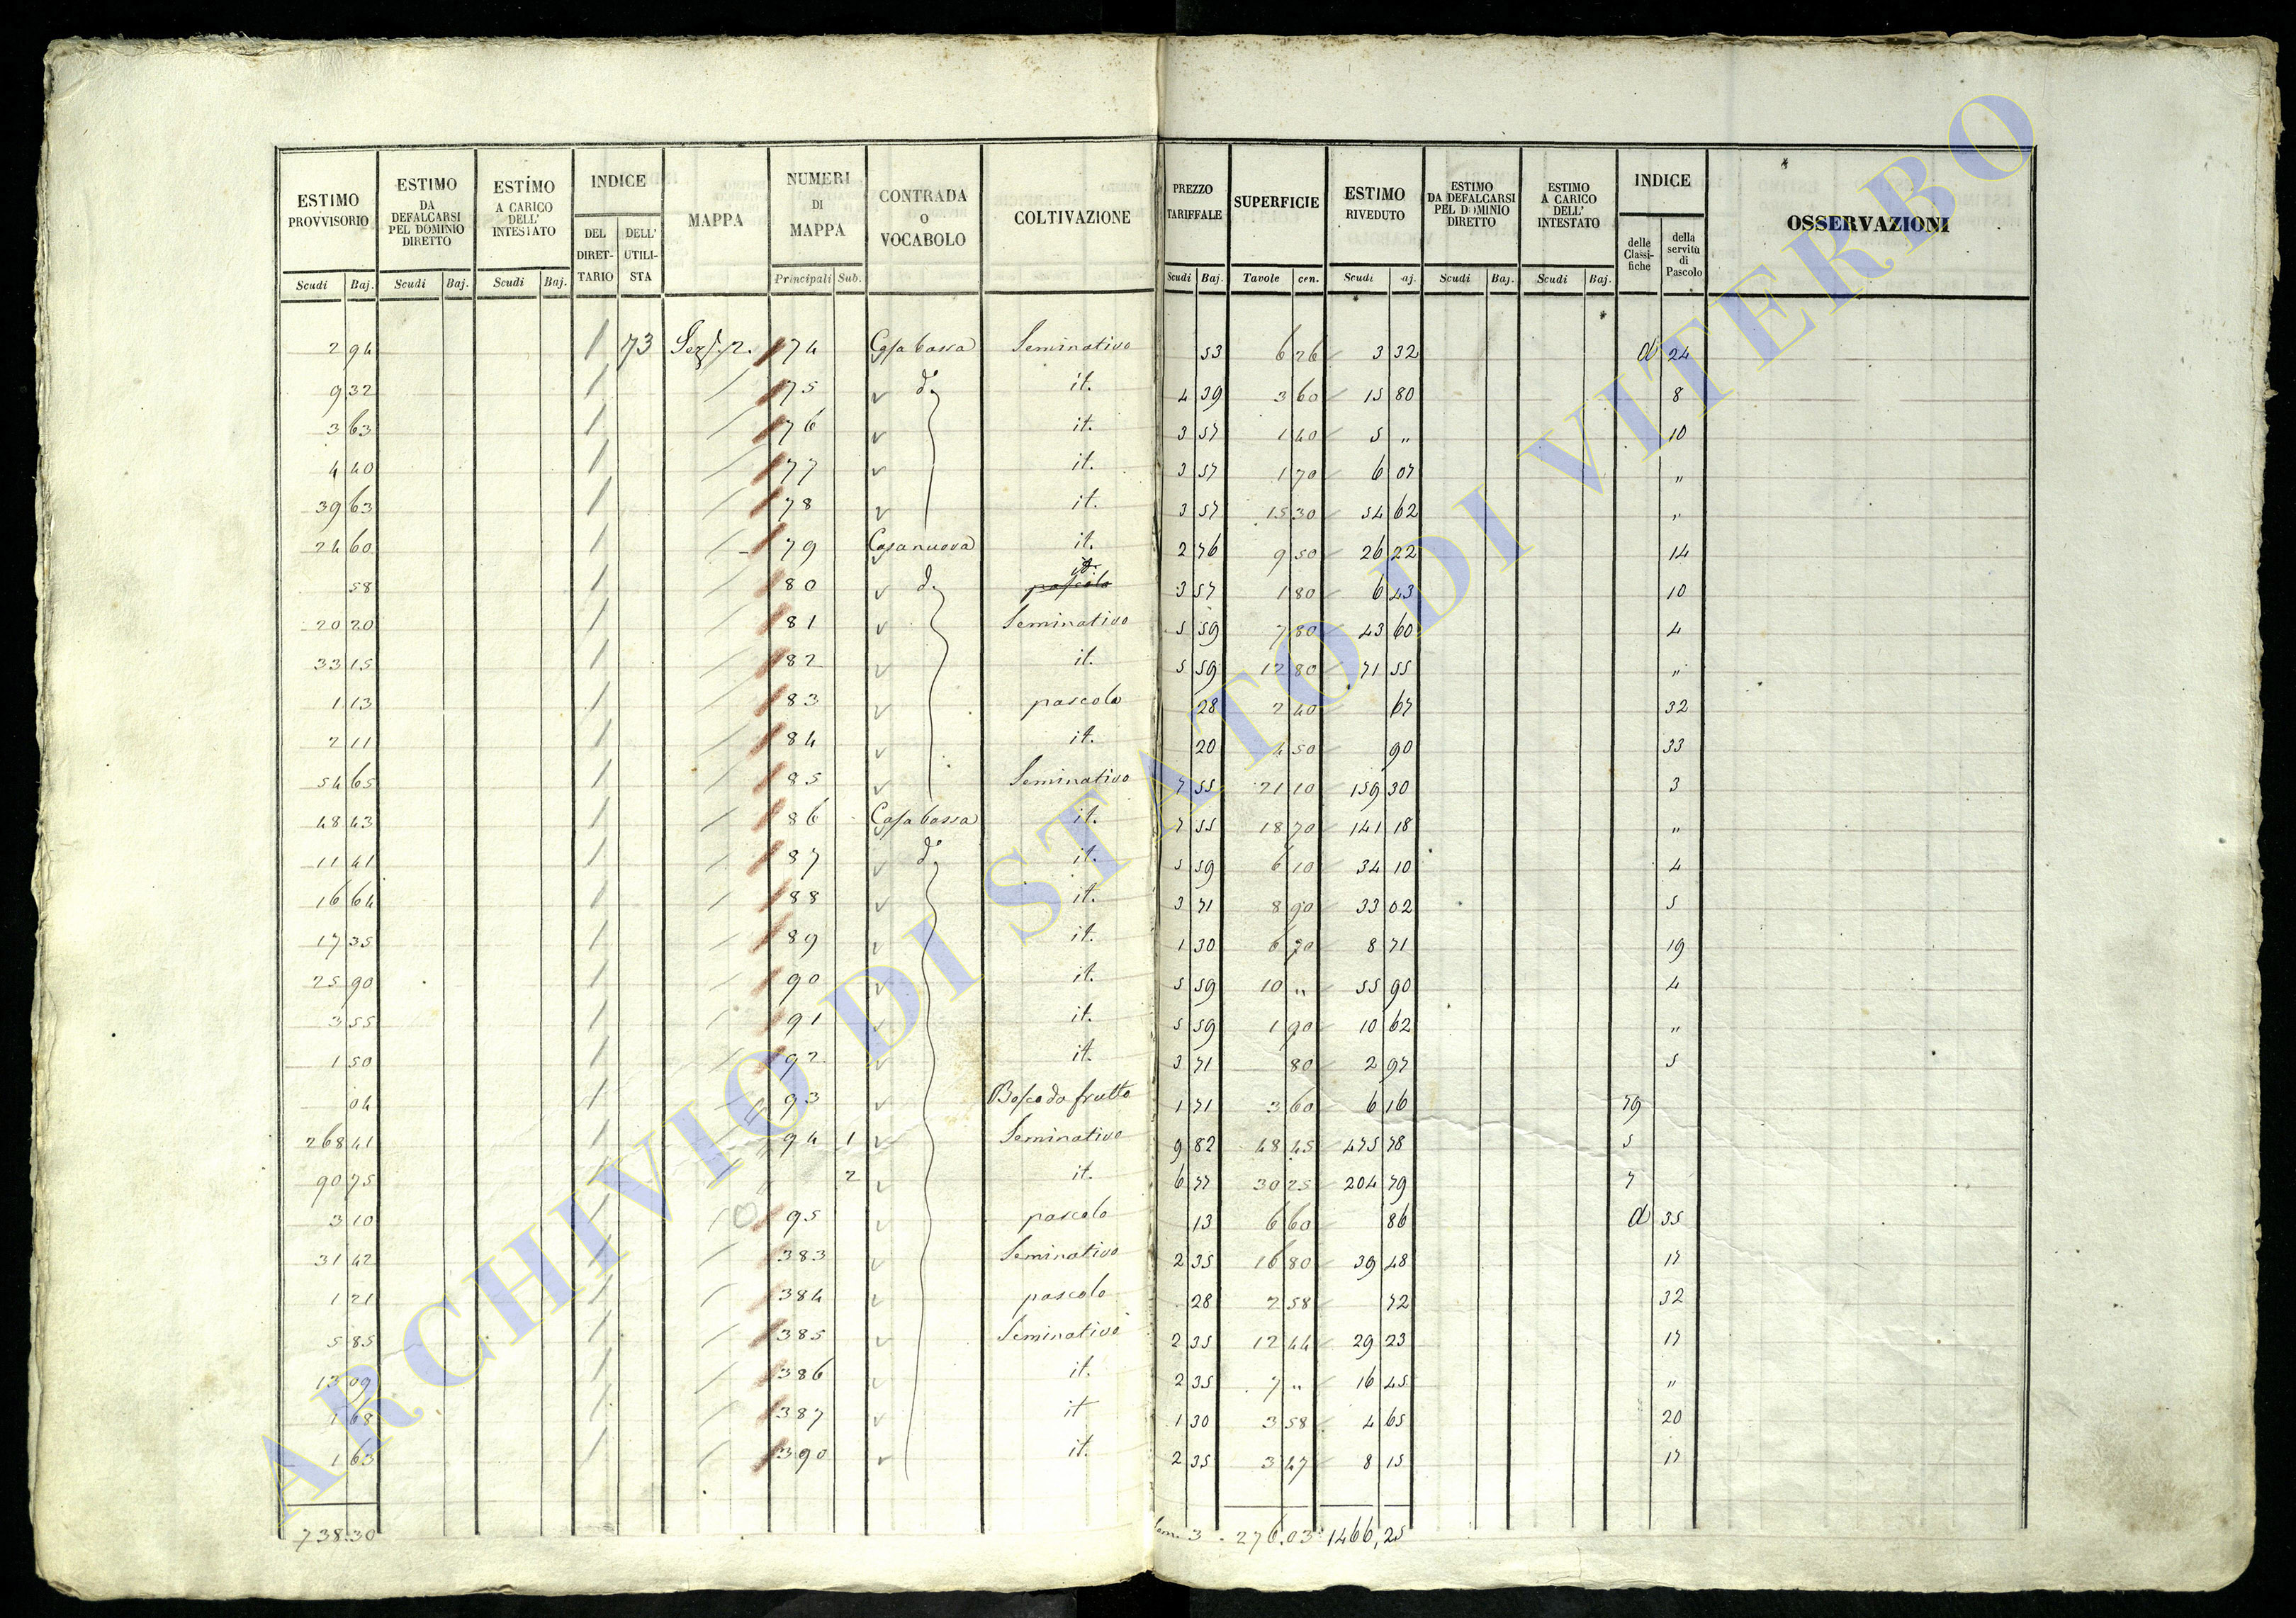 ESTIMO PROVVISORIO | ESTIMO DA DEFALCARSI PEL DOMINIO DIRETTO | ESTIMO A CARICO DELL' INTESTATO | INDICE | MAPPA | NUMERI DI MAPPA | CONTRADA O VOCABOLO | COLTIVAZIONE | PREZZO TARIFFALE | SUPERFICIE | ESTIMO RIVEDUTO | ESTIMO DA DEFALCARSI PEL DOMINIO DIRETTO | ESTIMO A CARICO DELL' INTESTATO | INDICE | OSSERVAZIONI
DEL DIRETTARIO | DELL' UTILISTA | delle Classifiche | della servitù di Pascolo
Scudi | Baj. | Scudi | Baj. | Scudi | Baj. | Principali | Sub. | Scudi | Baj. | Tavole | cen. | Scudi | aj. | Scudi | Baj. | Scudi | Baj.
2 94 | 1 | 73 | 74 | Casa bassa | Seminativo | 53 | 6 26 | 3 32 | 24
9 32 | 1 | 75 | do | it. | 4 39 | 3 60 | 15 80 | 8
3 63 | 1 | 76 | it. | 3 57 | 1 40 | 5 " | 10
4 40 | 1 | 77 | it. | 3 57 | 1 70 | 6 07 | "
39 63 | 1 | 78 | it. | 3 57 | 15 30 | 54 62 | "
24 60 | 1 | 79 | Casanuova | it. | 2 76 | 9 50 | 26 22 | 14
58 | 1 | 80 | do | pascolo it. | 3 57 | 1 80 | 6 43 | 10
20 20 | 1 | 81 | Seminativo | 5 59 | 7 80 | 43 60 | 4
33 15 | 1 | 82 | it. | 5 59 | 12 80 | 71 55 | "
1 13 | 1 | 83 | pascolo | 28 | 2 40 | 67 | 32
2 11 | 1 | 84 | it. | 20 | 4 50 | 90 | 33
54 65 | 1 | 85 | Seminativo | 7 55 | 21 10 | 159 30 | 3
48 43 | 1 | 86 | Casa bassa | it. | 7 55 | 18 70 | 141 18 | "
11 41 | 1 | 87 | do | it. | 5 59 | 6 10 | 34 10 | 4
16 64 | 1 | 88 | it. | 3 71 | 8 90 | 33 02 | 5
17 35 | 1 | 89 | it. | 1 30 | 6 70 | 8 71 | 19
25 90 | 1 | 90 | it. | 5 59 | 10 " | 55 90 | 4
3 55 | 1 | 91 | it. | 5 59 | 1 90 | 10 62 | "
1 50 | 1 | 92 | it. | 3 71 | 80 | 2 97 | 5
04 | 1 | 93 | Bosco da frutto | 1 71 | 3 60 | 6 16 | 79
268 41 | 1 | 94 | 1 | Seminativo | 9 82 | 48 45 | 475 78 | 5
90 75 | 1 | 2 | it. | 6 77 | 30 25 | 204 79 | 7
3 10 | 1 | 95 | pascolo | 13 | 6 60 | 86 | 35
31 42 | 1 | 383 | Seminativo | 2 35 | 16 80 | 39 48 | 17
1 21 | 1 | 384 | pascolo | 28 | 2 58 | 72 | 32
5 85 | 1 | 385 | Seminativo | 2 35 | 12 44 | 29 23 | 17
13 09 | 1 | 386 | it. | 2 35 | 7 " | 16 45 | "
1 68 | 1 | 387 | it | 1 30 | 3 58 | 4 65 | 20
1 63 | 1 | 390 | it. | 2 35 | 3 47 | 8 15 | 17
738.30 | 3 | 276.03 | 1466,25
ARCHIVIO DI STATO DI VITERBO